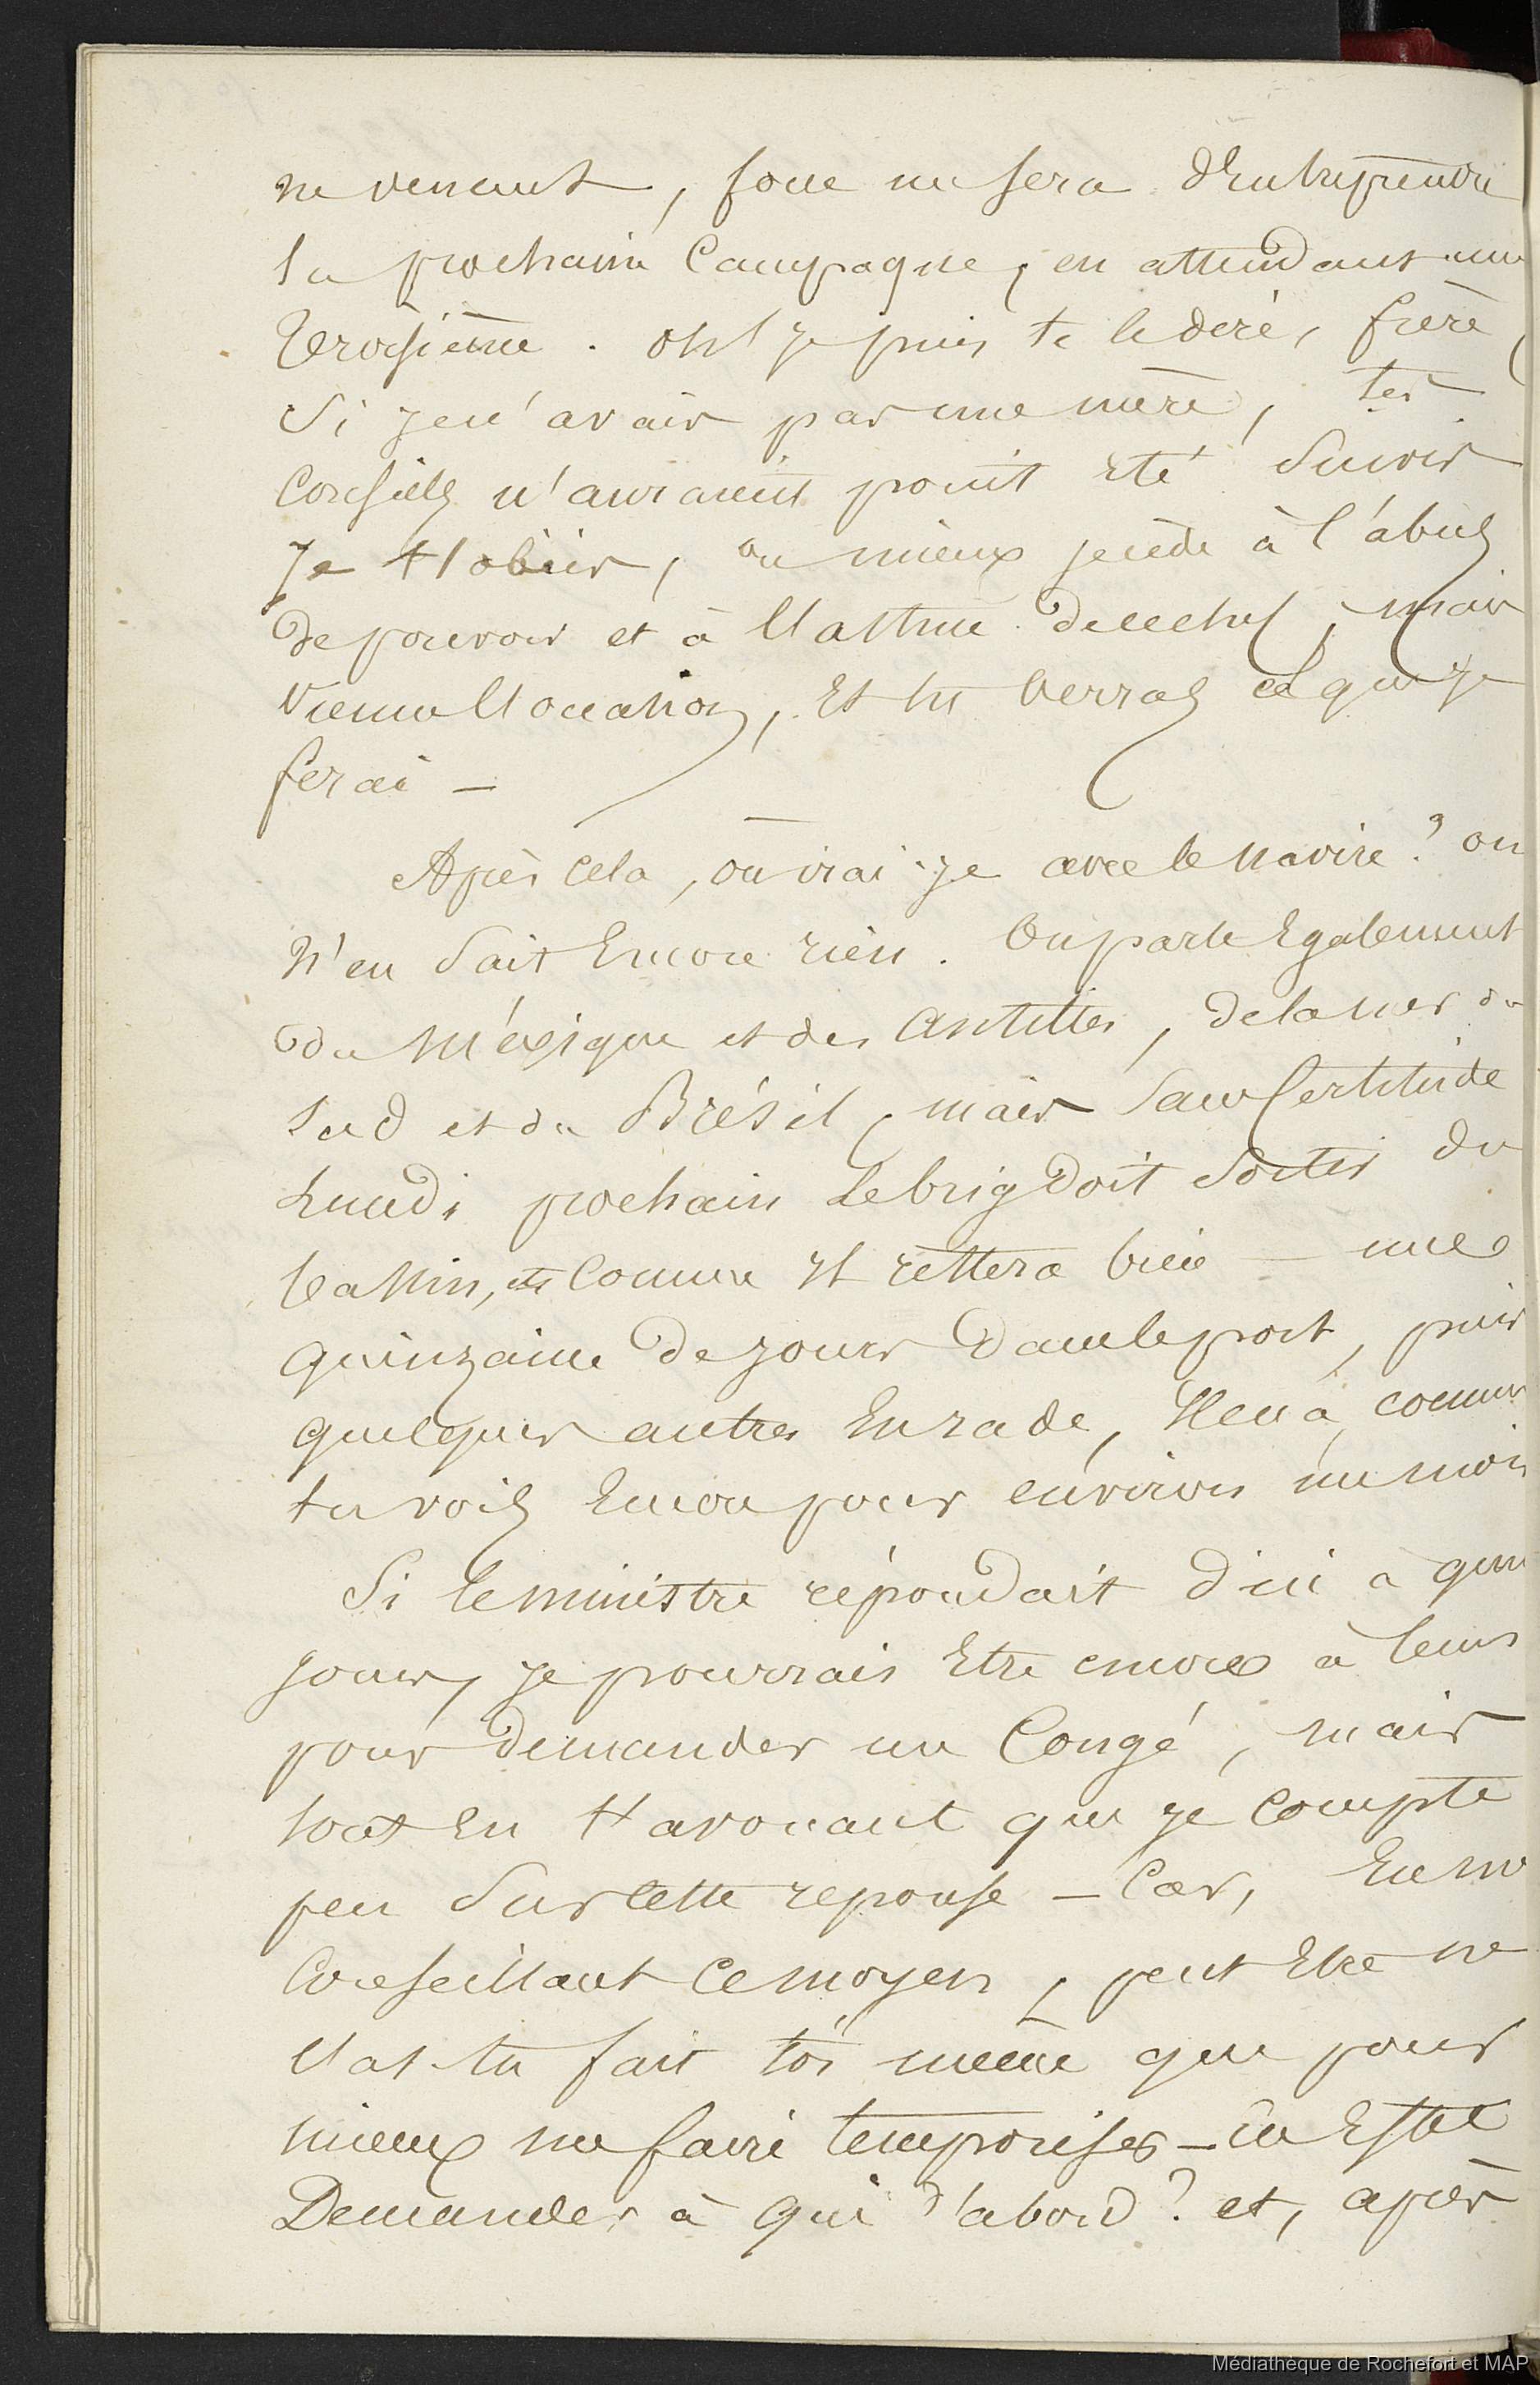 ne venant, force me sera d'Entreprendre
la prochaine Campagne, en attendant une
Troisième. Oh! je puis te le dire, frère
Si je n'avais pas une mère, tes
Conseils n'auraient point été Suivis
Je t'obéis, ou mieux je cède à l'abus
de pouvoir et à l'astuce de ce chef, mais
Vienne l'occasion, Et tu Verras ce que je
ferai —
Après Cela, où irai-je avec le navire? on
N'en Sait Encore rien. On parle Egalement
du Méxique et des Antilles, de la mer du
Sud et du Brésil, mais Sans Certitude
Lundi prochain Le brig doit Sortir du
bassin, et Comme Il restera bien — une
quinzaine de jours dans le port, puis
quelques autres En rade, Il en a, comme
tu vois Encore pour environ un mois
Si le ministre répondait d'ici a
jours, je pourrais Etre encore à tems
pour demander un Congé, mais
tout En t'avouant que je Compte
peu Sur Cette reponse — Car, En me
Conseillant Ce moyen, peut Etre ne
l'as-tu fait toi même que pour
mieux me faire temporiser — En Effet
Demander à qui d'abord? et, après
Médiathèque de Rochefort et MAP